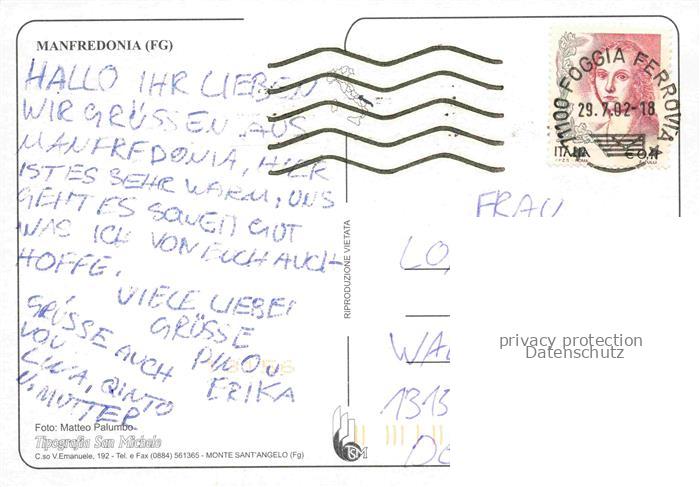 MANFREDONIA (FG)
HALLO IHR LIEBEN
WIR GRÜSSEN AUS
MANFREDONIA, HIER
IST ES SEHR WARM, UNS
GEHT ES SOWEIT GUT
WAS ICH VON EUCH AUCH
HOFFE.
VIELE LIEBE
GRÜSSE
ERIKA
GRÜSSE AUCH
VON
LUCA, QINTO
U. MUTTER
Foto: Matteo Palumbo
Tipografia San Michele
C.so V.Emanuele, 192 - Tel. e Fax (0884) 561365 - MONTE SANT'ANGELO (Fg)
RIPRODUZIONE VIETATA
TSM
71100 FOGGIA FERROVIA
29.7.02-18
ITALIA
FRAU
LO
WA
1313
privacy protection
Datenschutz